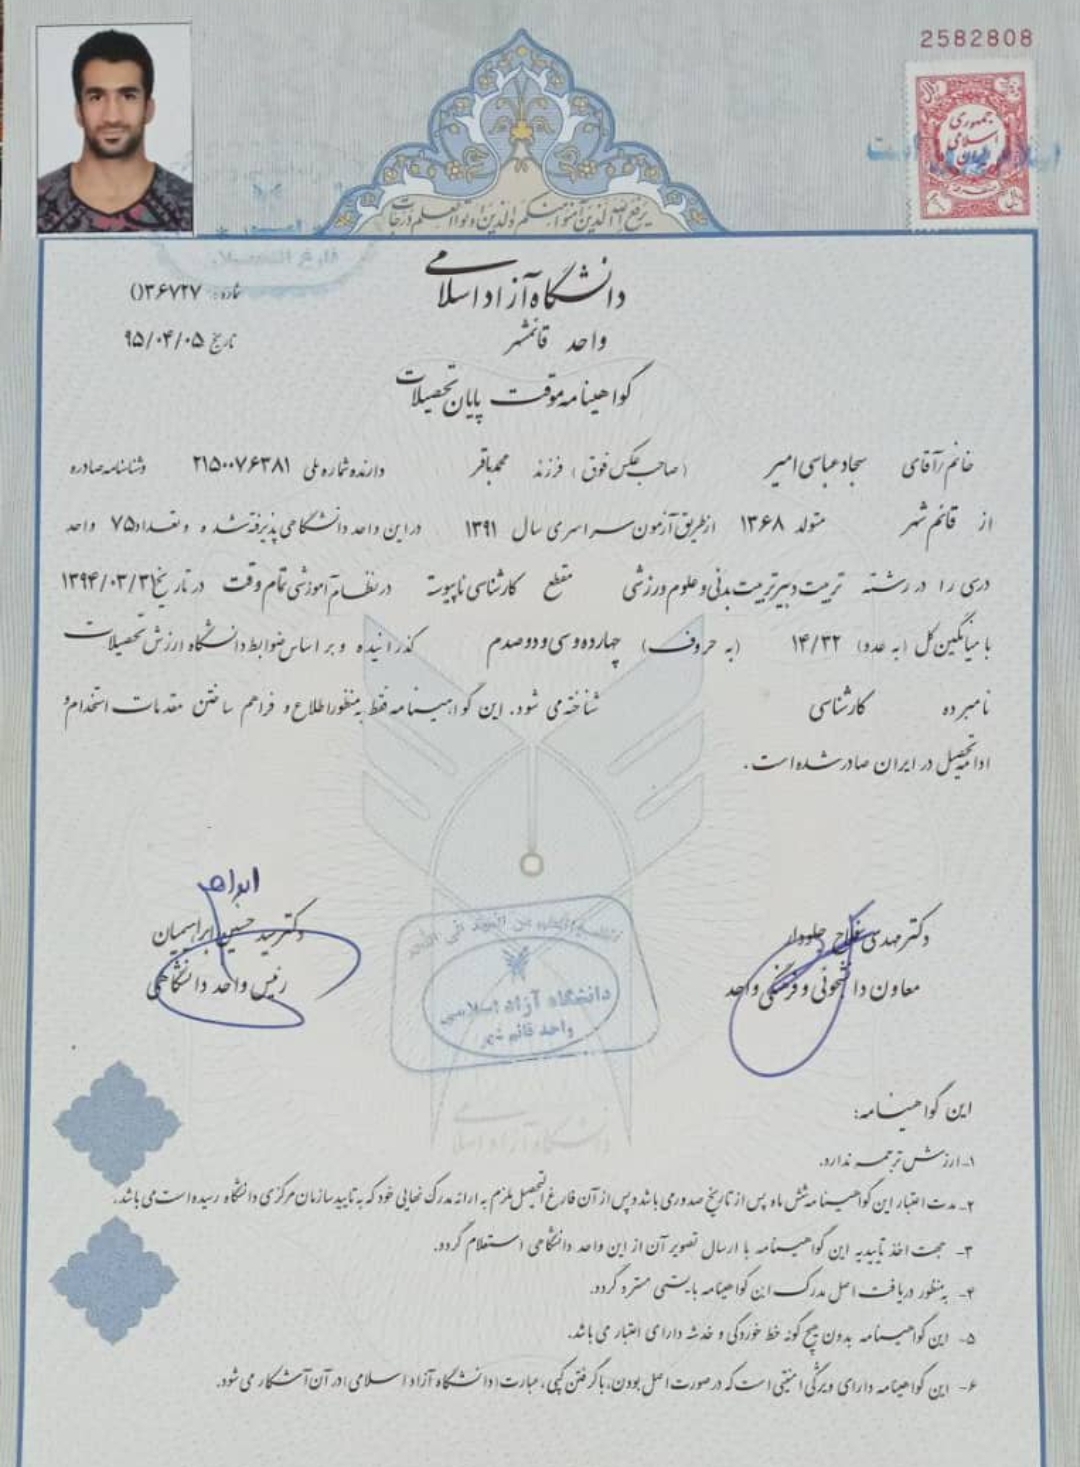 2582808
جمهوری
اسلامی
ایران
یرفع الله الذین آمنوا منکم والذین اوتوا العلم درجات
فارغ التحصیلان
دانشگاه آزاد اسلامی
شماره: ۳۶۷۲۷()
واحد قائمشهر
تاریخ ۹۵/۰۴/۰۵
گواهینامه موقت پایان تحصیلات
خانم/آقای سجاد عباسی امیر (صاحب عکس فوق) فرزند محمدباقر دارنده شماره ملی ۲۱۵۰۰۷۶۳۸۱ و شناسنامه صادره
از قائم شهر متولد ۱۳۶۸ از طریق آزمون سراسری سال ۱۳۹۱ در این واحد دانشگاهی پذیرفته شده و تعداد ۷۵ واحد
درسی را در رشته تربیت دبیر تربیت بدنی و علوم ورزشی مقطع کارشناسی ناپیوسته در نظام آموزشی تمام وقت در تاریخ ۱۳۹۴/۰۳/۳۱
با میانگین کل (به عدد) ۱۴/۳۲ (به حروف) چهارده و سی و دو صدم گذرانیده و بر اساس ضوابط دانشگاه ارزش تحصیلات
نامبرده کارشناسی شناخته می شود. این گواهینامه فقط به منظور اطلاع و فراهم ساختن مقدمات استخدام و
ادامه تحصیل در ایران صادر شده است.
دکتر مهدی فلاح جلودار
معاون دانشجوئی و فرهنگی واحد
دکتر سید حسین ابراهیمیان
رئیس واحد دانشگاهی
دانشگاه آزاد اسلامی
واحد قائم شهر
دانشگاه آزاد اسلامی
این گواهینامه:
۱- ارزش ترجمه ندارد.
۲- مدت اعتبار این گواهینامه شش ماه پس از تاریخ صدور می باشد و پس از آن فارغ التحصیل ملزم به ارائه مدرک نهایی خود که به تایید سازمان مرکزی دانشگاه رسیده است می باشد.
۳- جهت اخذ تاییدیه این گواهینامه با ارسال تصویر آن از این واحد دانشگاهی استعلام گردد.
۴- به منظور دریافت اصل مدرک این گواهینامه بایستی مسترد گردد.
۵- این گواهینامه بدون هیچ گونه خط خوردگی و خدشه دارای اعتبار می باشد.
۶- این گواهینامه دارای ویژگی امنیتی است که در صورت اصل بودن، با گرفتن کپی، عبارت (دانشگاه آزاد اسلامی) در آن آشکار می شود.